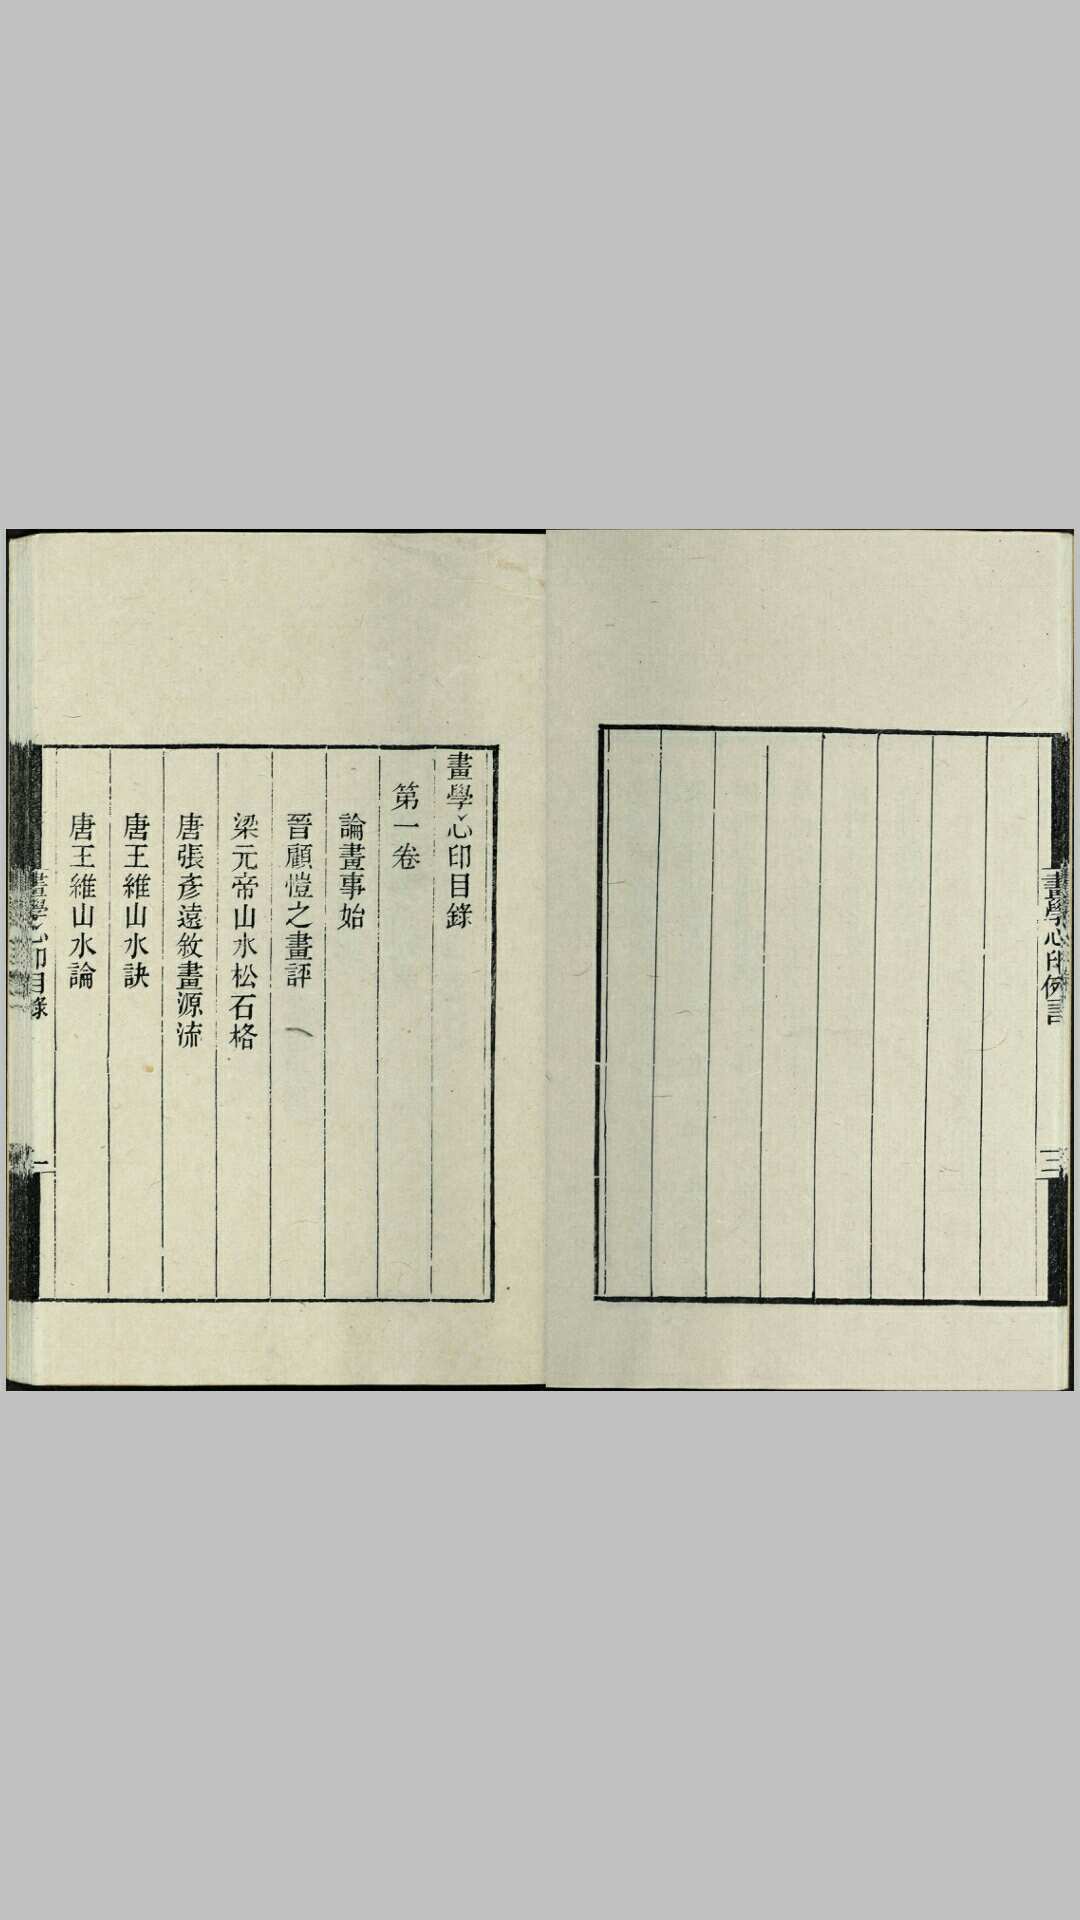 畫學心印例言
三
畫學心印目錄
第一卷
論畫事始
晉顧愷之畫評
梁元帝山水松石格
唐張彥遠敘畫源流
唐王維山水訣
唐王維山水論
畫學心印目錄